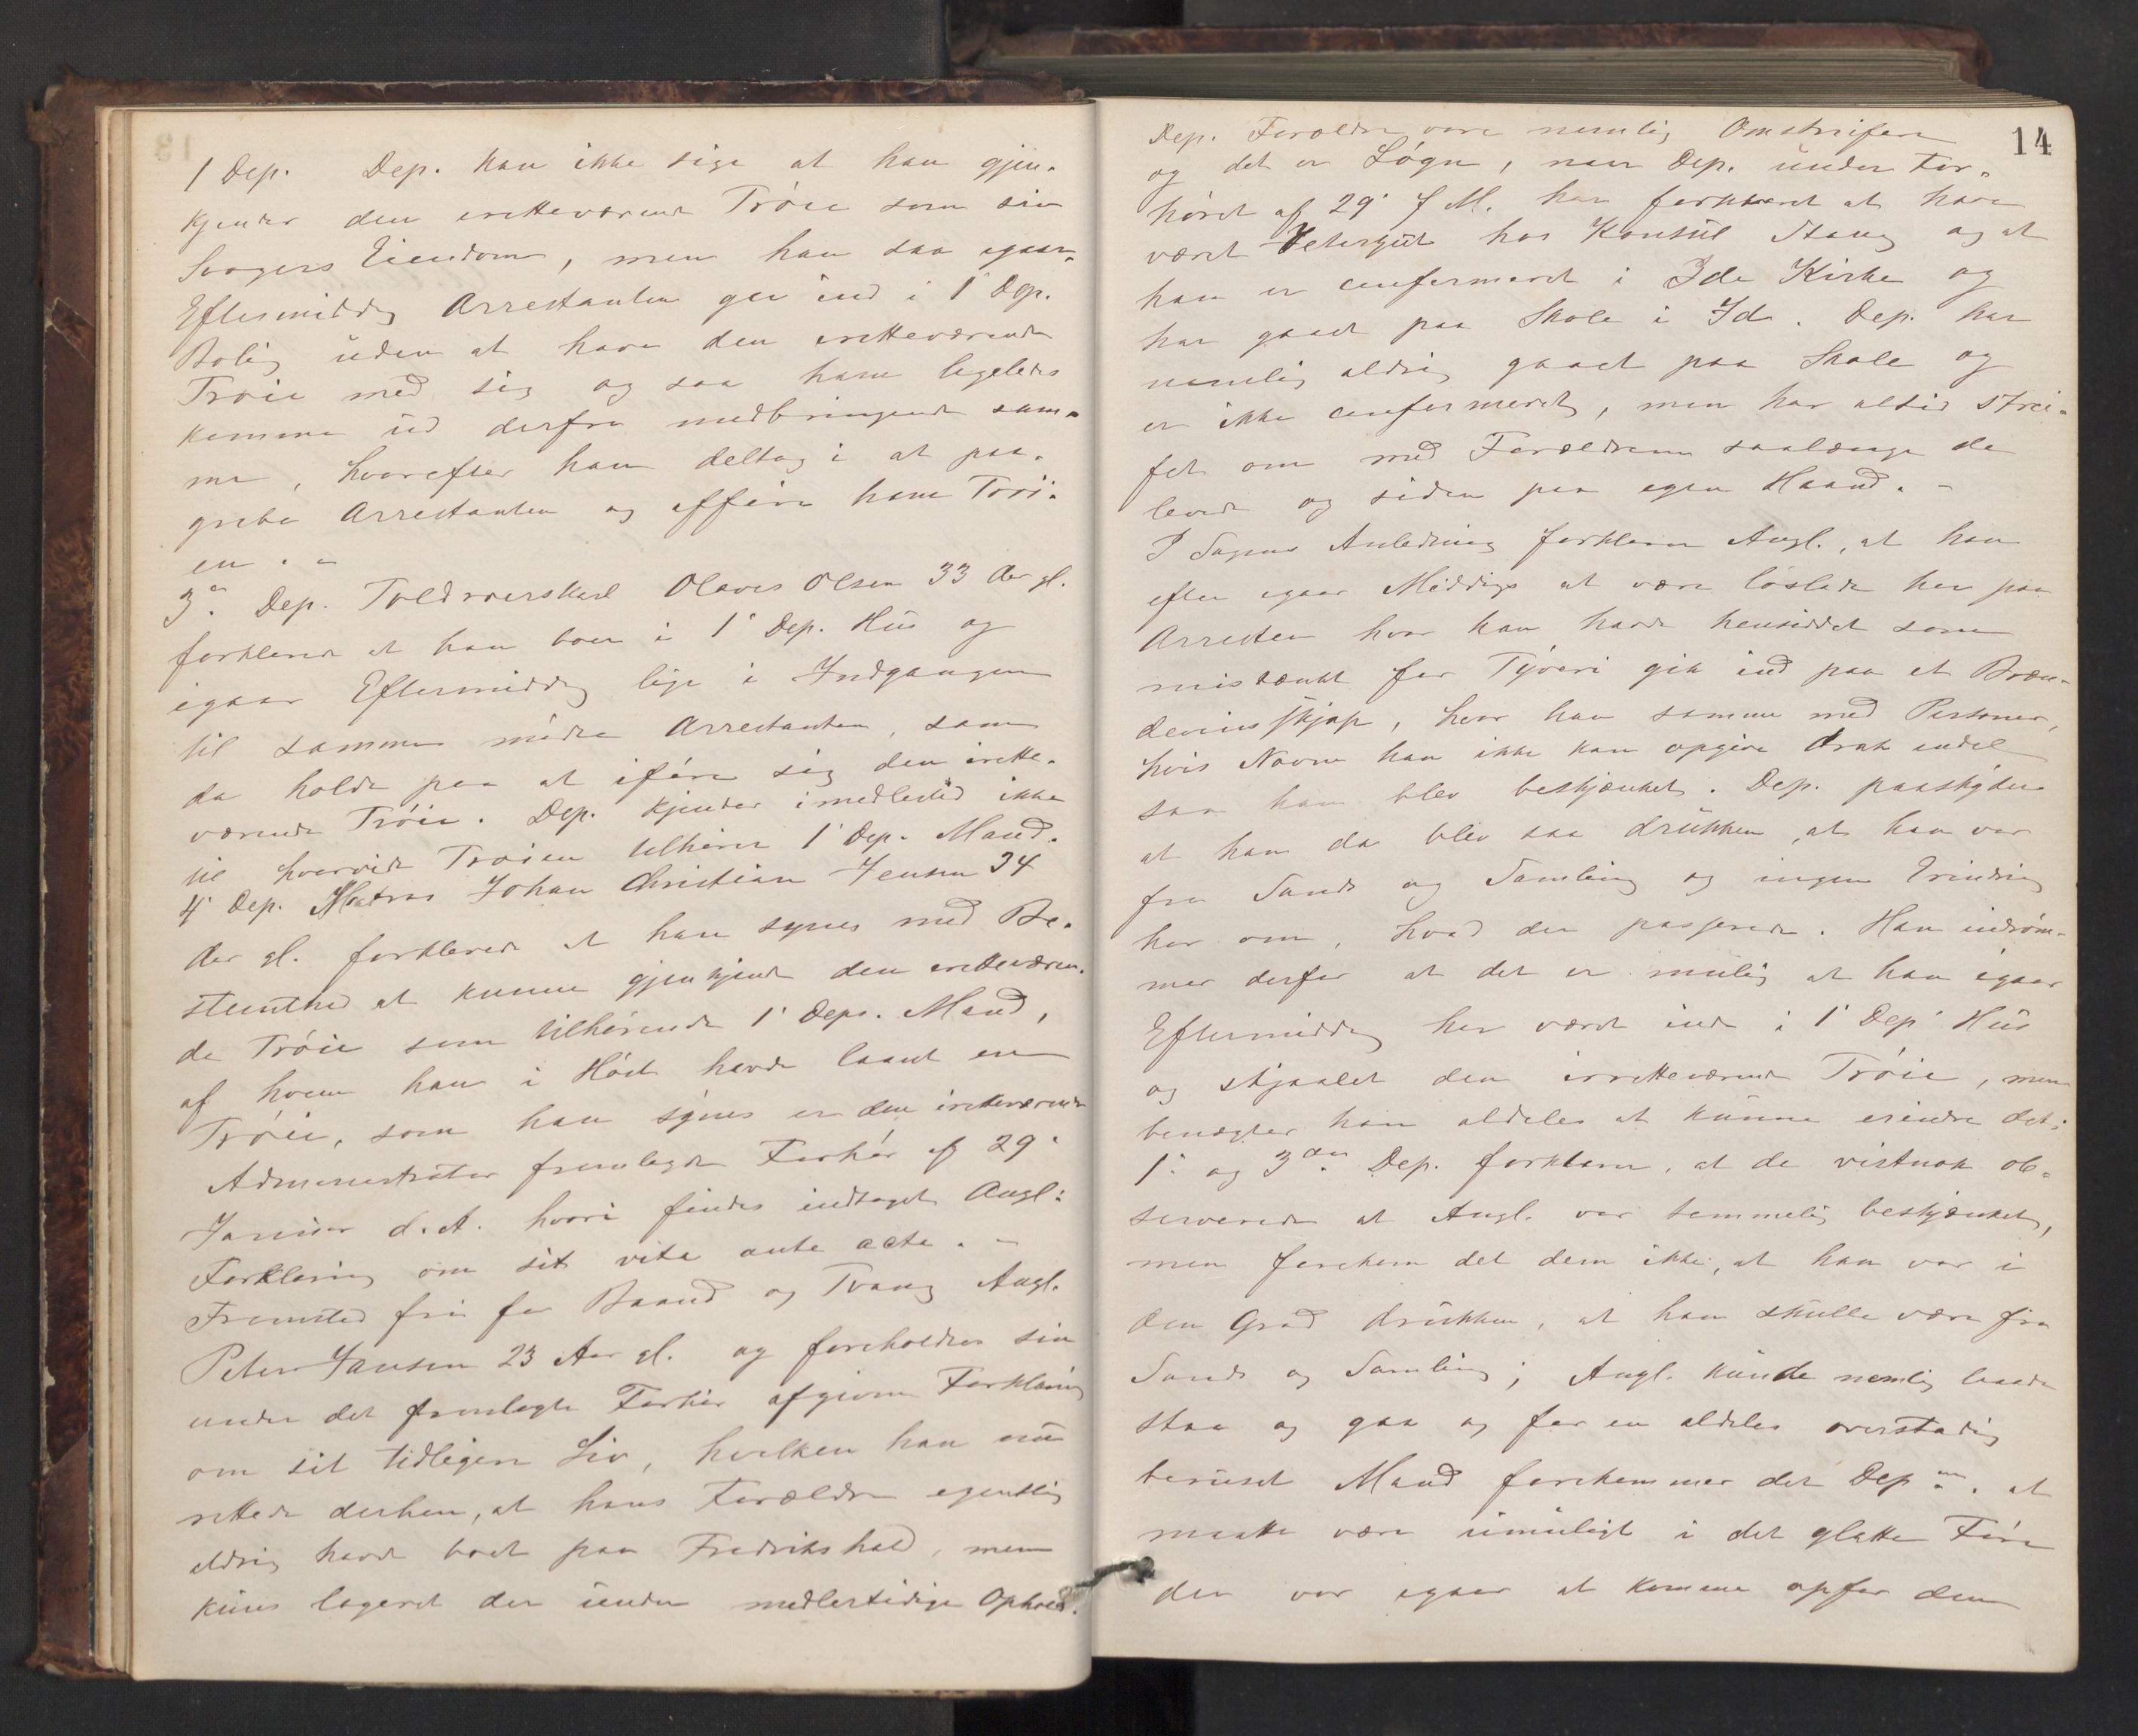 1 Dep. Dep. kan ikke sige at han gjen-
kjender den iretteværende Trøie som sin
Svogers Eiendom, men han saa igaar
Eftermiddag Arrestanten gaa ind i 1' Dep.
Bolig uden at have den iretteværende
Trøie med sig og saa ham ligeledes
komme ud derfra medbringende sam-
me, hvorefter han deltog i at paa-
gribe Arrestanten og afføre ham Trøi-
en. -
3' Dep. Toldroerskarl Olaves Olsen 33 Aar gl.
forklarede at han boer i 1' Dep. Hus og
igaar Eftermiddag lige i Indgangen
til samme mødte Arrestanten, som
da holdt paa at iføre sig den irette-
værende Trøie. Dep. kjender imedlertid ikke
til hvorvidt Trøien tilhører 1' Dep. Mand.
4' Dep. Matros Johan Christian Jensen 34
Aar gl. forklarede at han synes med Be-
stemthed at kunne gjenkjende den iretteværen-
de Trøie som tilhørende 1' Deps. Mand,
af hvem han i Høst havde laant en
Trøie, som han synes er den iretteværende
Administrator fremlagde Forhør af 29'
Januar d. A. hvori findes indtaget Angl:
Forklaring om sit vita ante acta. -
Fremsted fri for Baand og Tvang Angl.
Peter Jansen 23 Aar gl. og foreholdtes sin
under det fremlagte Forhør afgivne Forklaring
om sit tidligere Liv, hvilken han nu
rettede derhen, at hans Forældre egentlig
aldrig havde boet paa Fredrikshald, men
kuns logeret der under midlertidige Ophold.
14
Dep. Forældre vare nemlig Omstreifere
og det er Løgn, naar Dep. under For-
høret af 29' f. M. har forklaret at have
været Visergut hos Konsul Stang og at
han er confirmeret i Ide Kirke og
har gaaet paa Skole i Id. Dep. har
nemlig aldrig gaaet paa Skole og
er ikke confirmeret, men har altid strei-
fet om med Forældrene saalænge de
levede og siden paa egen Haand. -
I Sagens Anledning forklarer Angl., at han
efter igaar Middags at være løsladt her paa
Arresten hvor han havde hensiddet som
mistænkt for Tyveri gik ind paa et Bræn-
devinsskjap, hvor han sammen med Personer,
hvis Navne han ikke kan opgive drak endel
saa han blev beskjænket. Dep. paaskyder
at han da blev saa drukken, at han var
fra Sands og Samling og ingen Erindring
har om, hvad der passerede. Han indrøm-
mer derfor at det er mulig at han igaar
Eftermiddag har været inde i 1' Dep' Hus
og stjaalet den iretteværende Trøie, men
benægter han aldeles at kunne erindre det.
1' og 3die Dep. forklarer, at de vistnok ob-
serverede at Angl. var temmelig beskjænket,
men forekom det dem ikke, at han var i
den Grad drukken, at han skulle være fra
Sands og Samling; Angl. kunde nemlig baade
staa og gaa og for en aldeles overstadig
beruset Mand forekommer det Dep. at
maatte være umuligt i det glatte Føre
der var igaar at komme opfor den